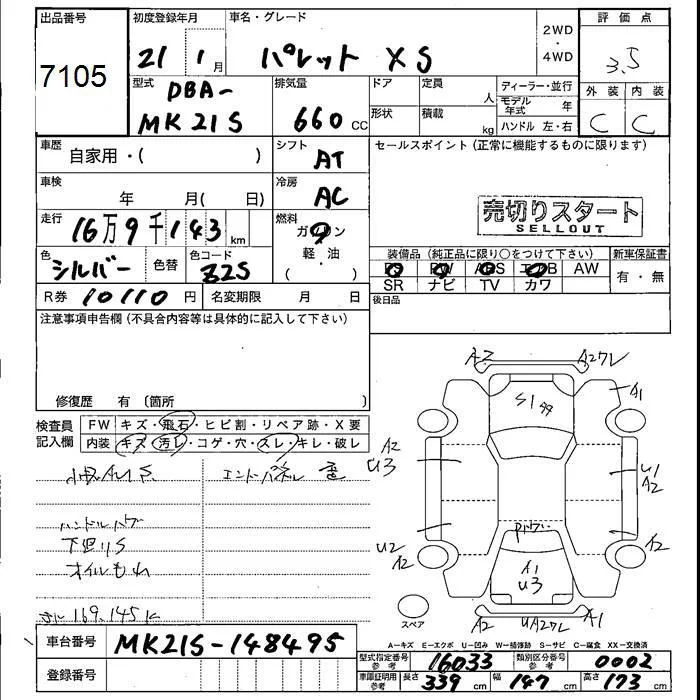 出品番号 初度登録年月 車名・グレード 2WD・4WD 評価点
7105 21 1月 パレット XS 3.5
型式 DBA- 排気量 ドア 定員 人 ディーラー・並行 外装 内装
MK21S 660 CC 形状 積載 kg モデル年式 年 C C
ハンドル 左・右
車歴 自家用・( ) シフト AT セールスポイント(正常に機能するものに限ります)
車検 年 月( 日) 冷房 AC
売切りスタート
SELLOUT
走行 16万9千143km 燃料 ガソリン
軽・油
( ・ )
色 シルバー 色替 色コード Z2S
装備品(純正品に限り○をつけて下さい) 新車保証書
PS PW ABS エアB AW 有・無
SR ナビ TV カワ
R券 10110円 名変期限 月 日 後日品
注意事項申告欄(不具合内容等は具体的に記入して下さい)
修復歴 有 〔箇所 〕
検査員記入欄 FW キズ・飛石・ヒビ割・リペア跡・X要
内装 キズ・汚レ・コゲ・穴・スレ・キレ・破レ
小キズAUS エンドパネル 歪
下廻りS
オイルもれ
169,145K
A2 A2ワレ
A1
S1
A2
U3
U1
A2
U2
A2
A2
A1
U3
A2 UA2ワレ A1
スペア
A-キズ E-エクボ U-凹み W-補修跡 S-サビ C-腐食 XX-交換済
車台番号 MK21S-148495
型式指定番号 参考 16033 類別区分番号 参考 0002
登録番号
車庫証明用 参考 長さ 339 cm 幅 147 cm 高さ 173 cm